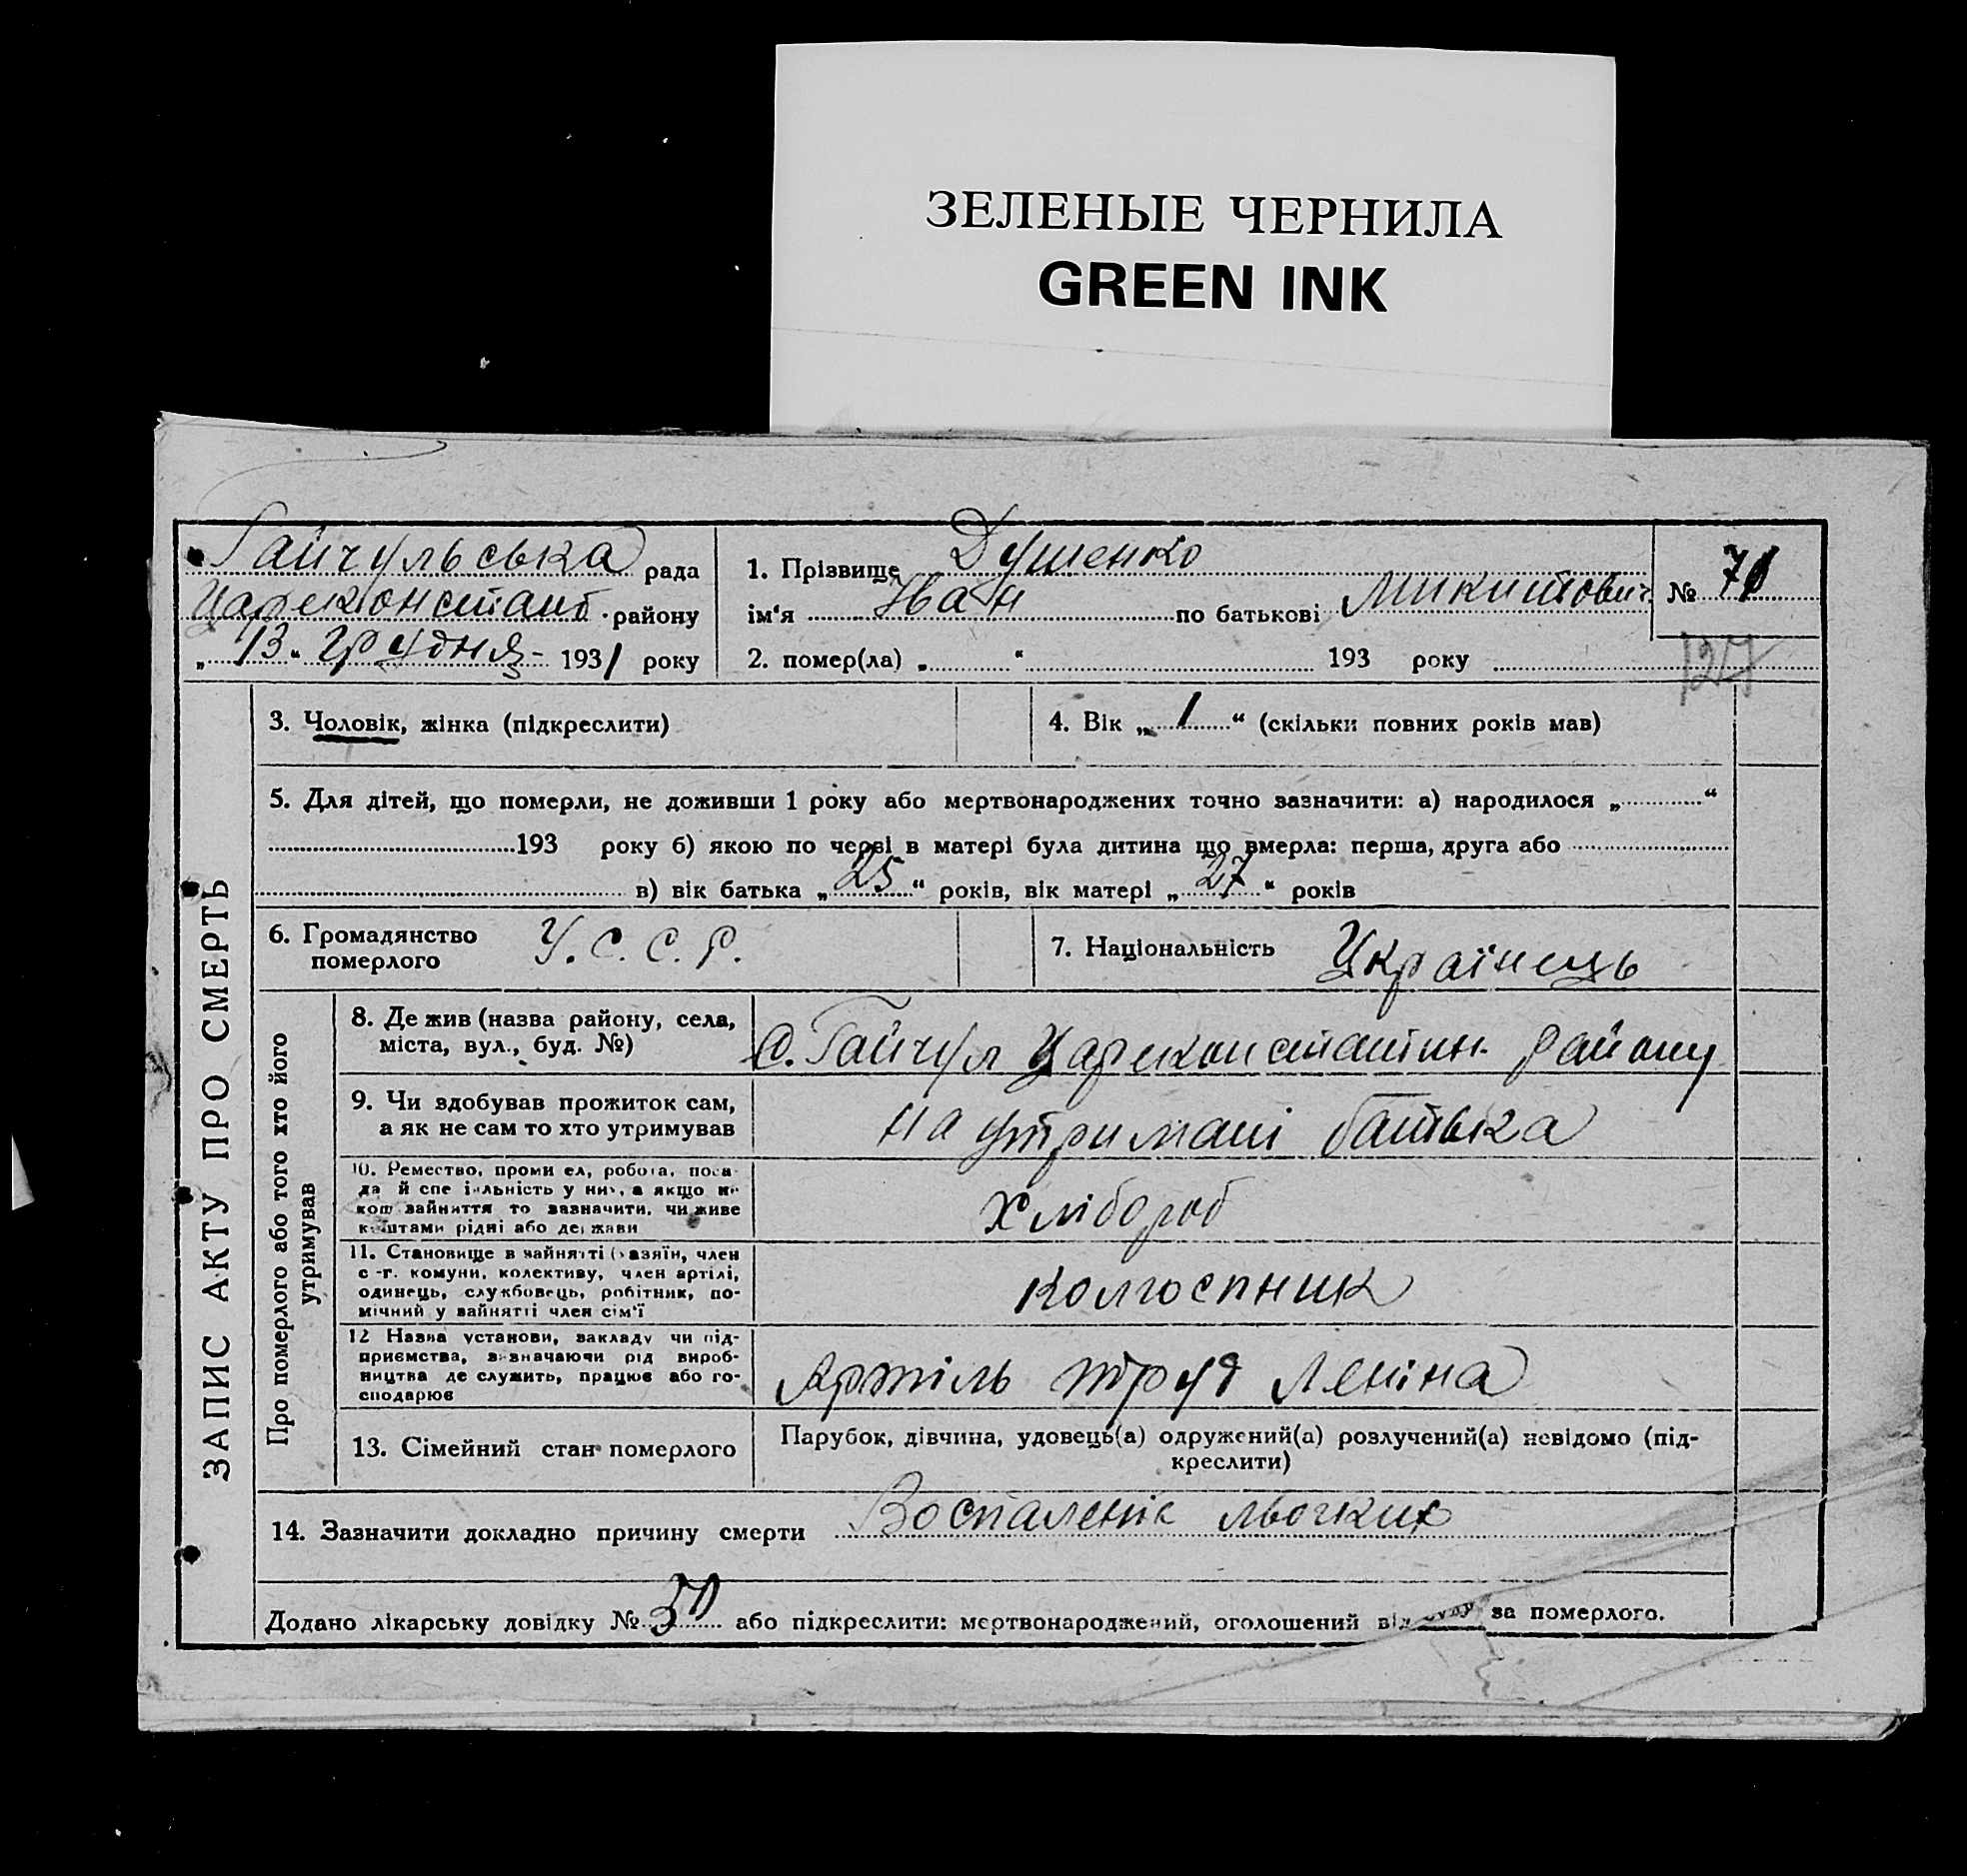 ЗЕЛЕНЫЕ ЧЕРНИЛА
GREEN INK
Гайчульська рада
Цареконстант. району
„13“ грудня 1931 року
1. Прізвище Душенко
ім'я Іван по батькові Микитович
2. помер(ла) „ “ 193 року
№ 71
127
ЗАПИС АКТУ ПРО СМЕРТЬ
3. Чоловік, жінка (підкреслити)
4. Вік „1“ (скільки повних років мав)
5. Для дітей, що померли, не доживши 1 року або мертвонароджених точно зазначити: а) народилося „ “
193 року б) якою по черзі в матері була дитина що вмерла: перша, друга або
в) вік батька „25“ років, вік матері „27“ років
6. Громадянство
померлого
У.С.С.Р.
7. Національність Українець
Про померлого або того хто його
утримував
8. Де жив (назва району, села,
міста, вул., буд. №)
С. Гайчул Цареконстантин. району
9. Чи здобував прожиток сам,
а як не сам то хто утримував
на утримані батька
10. Ремество, промисел, робота, поса-
да й спеціяльність у них, а якщо ні-
кош зайняття то зазначити, чи живе
коштами рідні або держави
хлібороб
11. Становище в зайнятті (хазяїн, член
с.-г. комуни, колективу, член артілі,
одинець, службовець, робітник, по-
мічний у зайнятті член сім'ї
колгоспник
12 Назва установи, закладу чи під-
приємства, зазначаючи рід вироб-
ництва де служить, працює або го-
сподарює
Артіль труд Леніна
13. Сімейний стан померлого
Парубок, дівчина, удовець(а) одружений(а) розлучений(а) невідомо (під-
креслити)
14. Зазначити докладно причину смерти Воспаленіє льогких
Додано лікарську довідку № або підкреслити: мертвонароджений, оголошений за померлого.